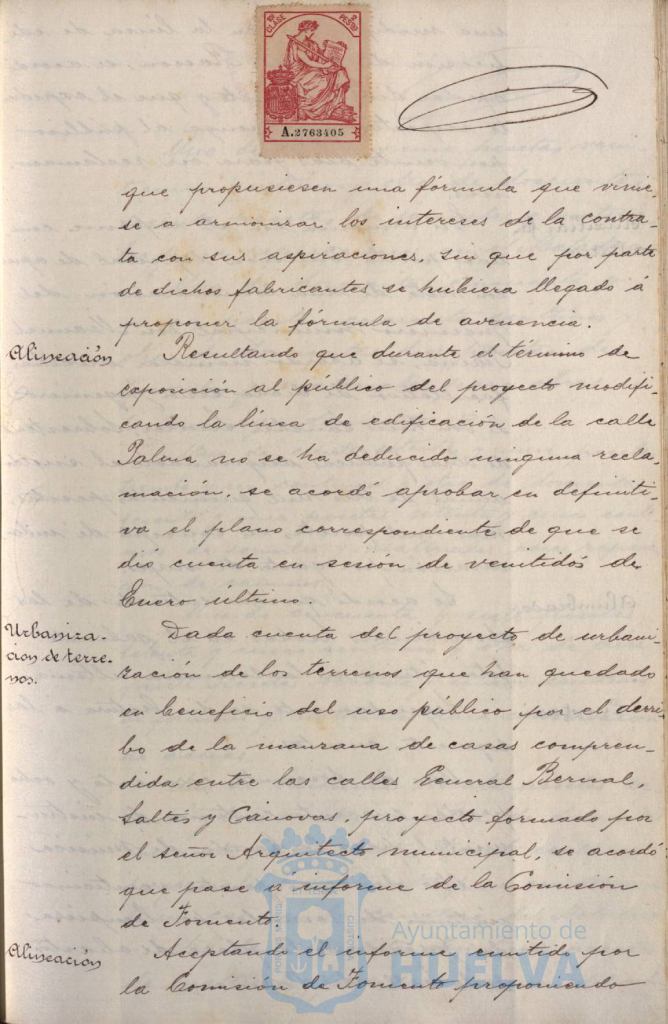 10ª CLASE
2 PESTAS
A.2763405
que propusiesen una fórmula que vinie-
se a armonizar los intereses de la contra-
ta con sus aspiraciones, sin que por parte
de dichos fabricantes se hubiera llegado á
proponer la fórmula de avenencia.
Alineación
Resultando que durante el término de
exposición al público del proyecto modifi-
cando la línea de edificación de la calle
Palma no se ha deducido ninguna recla-
mación, se acordó aprobar en definiti-
va el plano correspondiente de que se
dió cuenta en sesión de venitidós de
Enero último.
Urbaniza-
cion de terre-
nos.
Dada cuenta del proyecto de urbani-
zación de los terrenos que han quedado
en beneficio del uso público por el derri-
bo de la manzana de casas compren-
dida entre las calles General Bernal,
Saltés y Cánovas, proyecto formado por
el señor Arquitecto municipal, se acordó
que pase a informe de la Comisión
de Fomento.
Alineación
Aceptando el informe emitido por
la Comisión de Fomento proponiendo
Ayuntamiento de
HUELVA